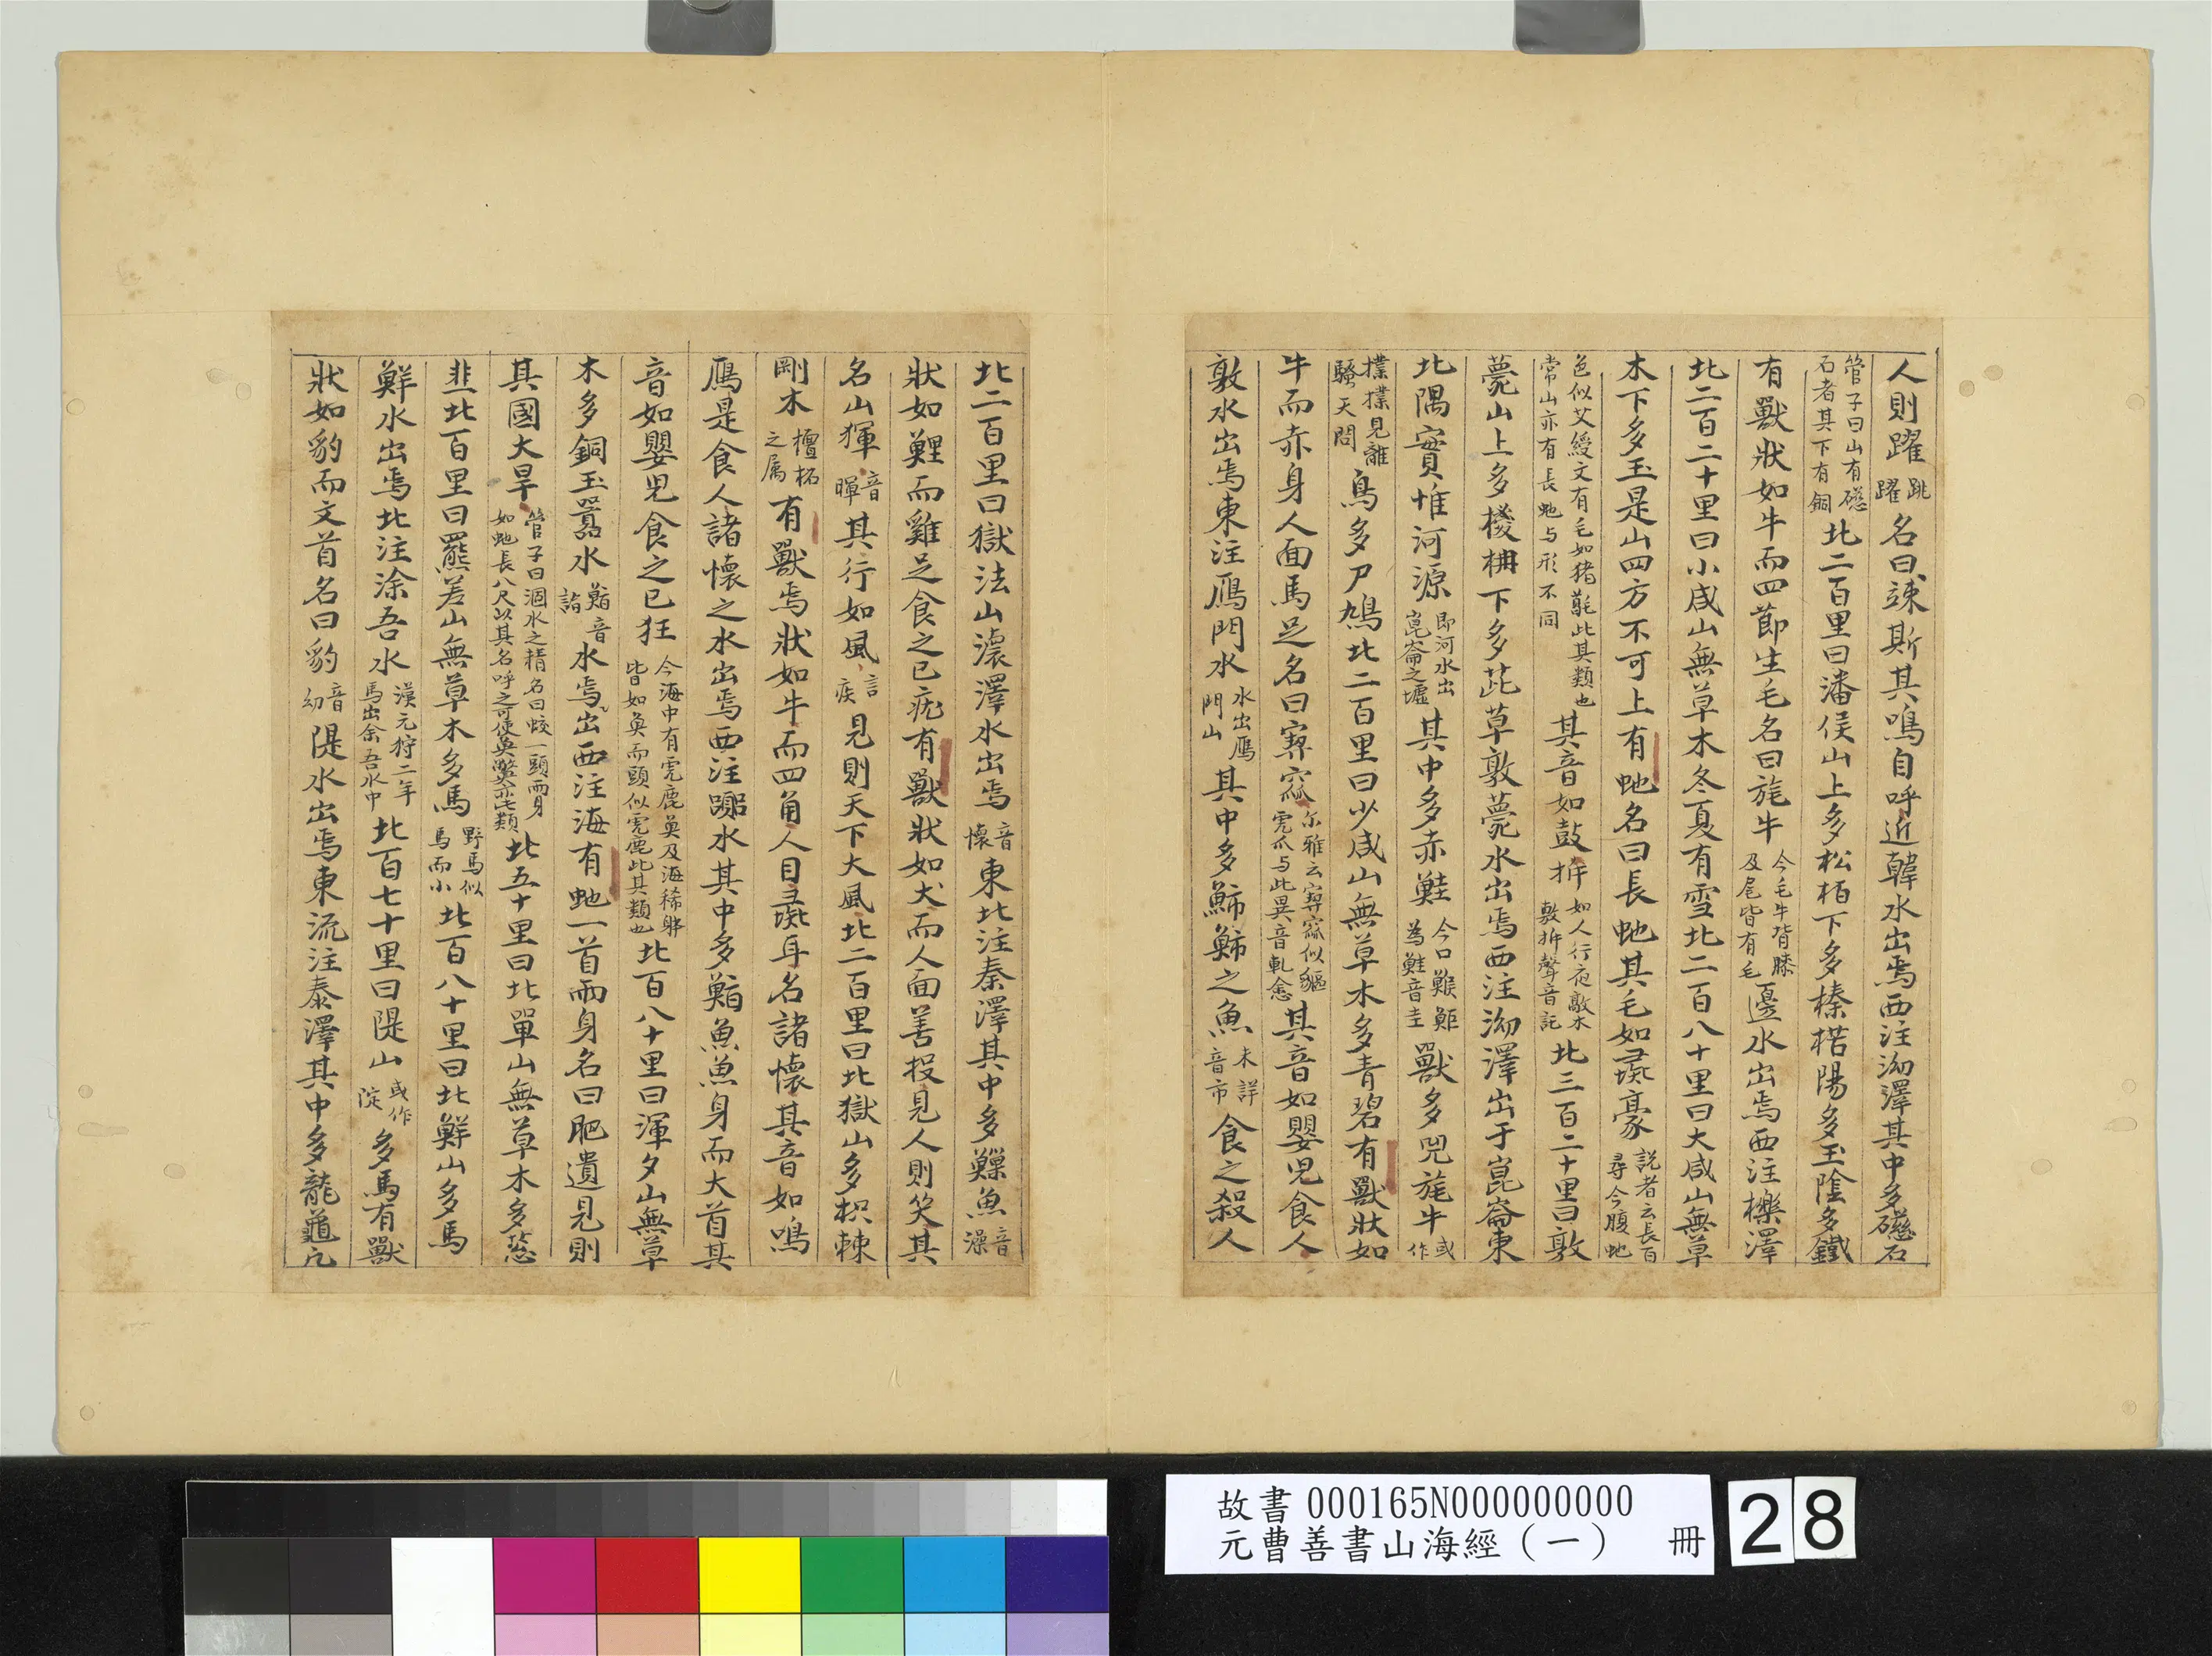 人則躍跳躍名曰竦斯其鳴自呼近韓水出焉西注泑澤其中多礠石
管子曰山有礠石者其下有銅北二百里曰潘侯山上多松栢下多榛楛陽多玉陰多鐵
有獸狀如牛而四節生毛名曰旄牛今毛牛背膝及尾皆有毛邊水出焉西注櫟澤
北二百二十里曰小咸山無草木冬夏有雪北二百八十里曰大咸山無草
木下多玉是山四方不可上有虵名曰長虵其毛如彘豪說者云長百尋今腹虵
色似艾綬文有毛如猪髦此其類也常山亦有長虵与形不同其音如鼓柝如人行夜敲木敷柝聲音託北三百二十里曰敦
薨山上多椶枏下多茈草敦薨水出焉西注泑澤出于崑崙東
北隅實惟河源即河水出崑崙之墟其中多赤鮭今口鯸鮔為鮭音圭獸多兕旄牛或作
㹒㹒見離騷天問鳥多尸鳩北二百里曰少咸山無草木多青碧有獸狀如
牛而赤身人面馬足名曰窫窳尔雅云窫窳似貙虎爪与此異音軋愈其音如嬰兒食人
敦水出焉東注鴈門水水出鴈門山其中多䰽䰽之魚未詳音市食之殺人
北二百里曰獄法山瀤澤水出焉音懷東北注泰澤其中多鱳魚音澡
狀如鯉而雞足食之已疣有獸狀如犬而人面善投見人則笑其
名山㹆音暉其行如風言疾見則天下大風北二百里曰北獄山多枳棘
剛木檀柘之属有獸焉狀如牛而四角人目彘耳名諸懷其音如鳴
鴈是食人諸懷之水出焉西注嚻水其中多鮨魚魚身而大首其
音如嬰兒食之已狂今海中有虎鹿魚及海狶躰皆如魚而頭似虎鹿此其類也北百八十里曰渾夕山無草
木多銅玉嚻水鮨音詣水焉出西注海有虵一首兩身名曰肥遺見則
其國大旱管子曰涸水之精名曰蚑一頭兩身如虵長八尺以其名呼之可使魚鱉亦此類北五十里曰北單山無草木多䓗
韭北百里曰羆差山無草木多馬野馬似馬而小北百八十里曰北鮮山多馬
鮮水出焉北注涂吾水漢元狩二年馬出余吾水中北百七十里曰隄山或作㝎多馬有獸
狀如豹而文首名曰豹音幼隄水出焉東流注泰澤其中多龍龜凡
故書000165N000000000
元曹善書山海經（一） 冊
28